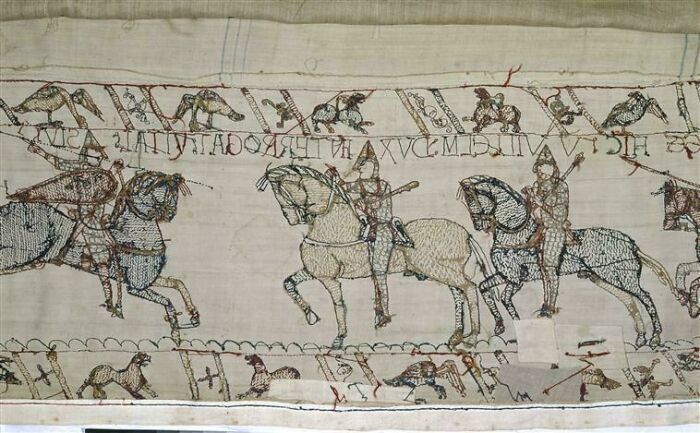 HIC VVILLELM DVX INTERROGAT VITAL SI